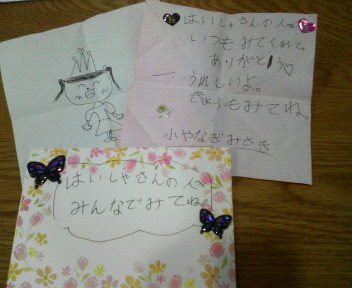 はいしゃさんの人へ
いつもみてくれて、
ありがとう♡
うれしいよ。
きょうもみてね。
小やなぎみさき
はいしゃさんの人へ
みんなでみてね。